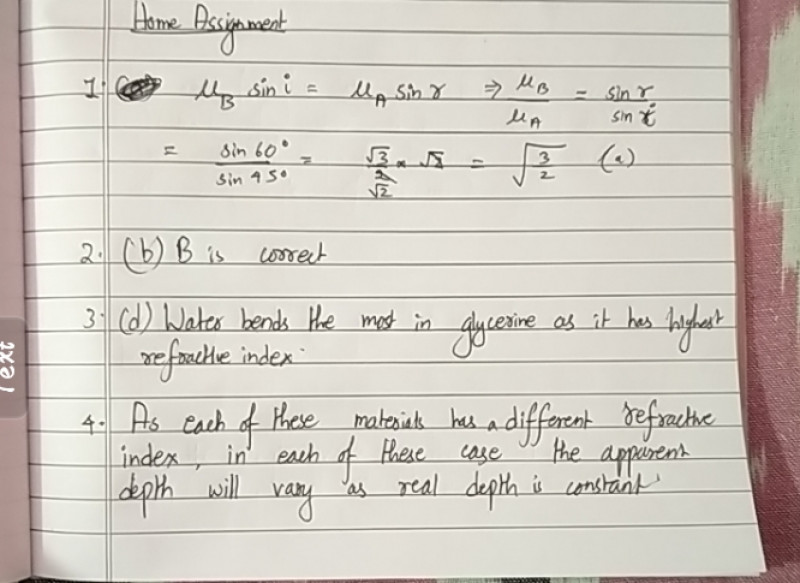 Home Assignment
1. μ_B sin i = μ_A sin r ⇒ μ_B/μ_A = sin r/sin i
= sin 60°/sin 45° = √3/√2 = √(3/2) (a)
2. (b) B is correct
3. (d) Water bends the most in glycerine as it has highest
refractive index.
4. As each of these materials has a different refractive
index, in each of these case the apparent
depth will vary as real depth is constant.
Text